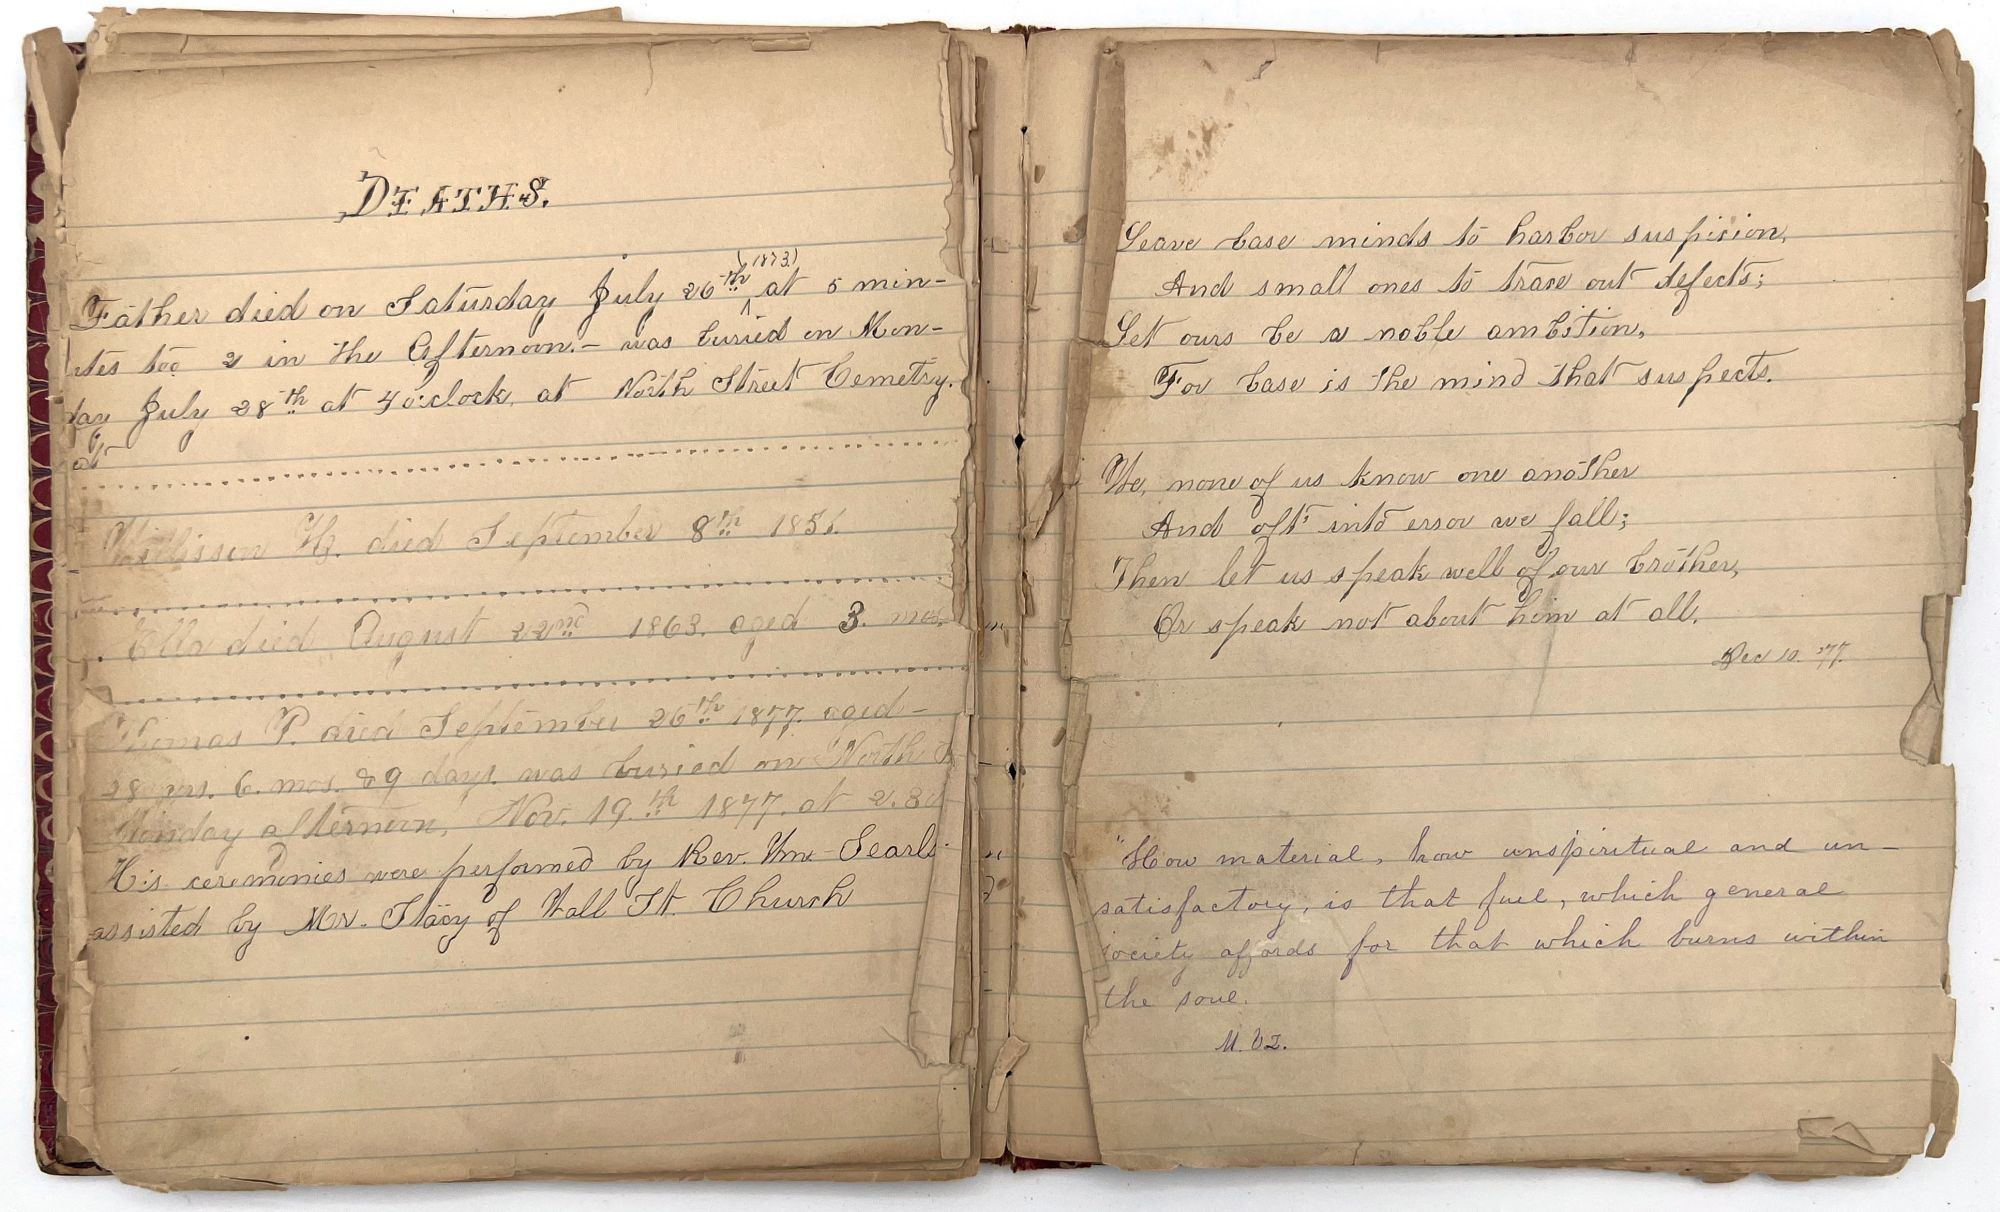 DEATHS.
Father died on Saturday July 26th (1873) at 5 min-
utes too 2 in the Afternoon. - was buried on Mon-
day July 28th at 4 o'clock, at North Street Cemetry.
at
H. died September 8th 1851.
Ella died August 22nd 1863. aged 3. mos.
Thomas P. died September 26th 1877. aged -
28 yrs. 6. mos. & 9 days. was buried on North S
Monday afternoon, Nov. 19.th 1877. at 2.30
His ceremonies were performed by Rev. Wm. Searls
assisted by Mr. Stacy of Wall St. Church
Leave base minds to harbor suspicion,
And small ones to trace out defects;
Let ours be a noble ambition,
For base is the mind that suspects.
We, none of us know one another
And oft' into error we fall;
Then let us speak well of our brother,
Or speak not about him at all.
Dec 10. '77.
"How material, how unspiritual and un-
satisfactory, is that fuel, which general
society affords for that which burns within
the soul.